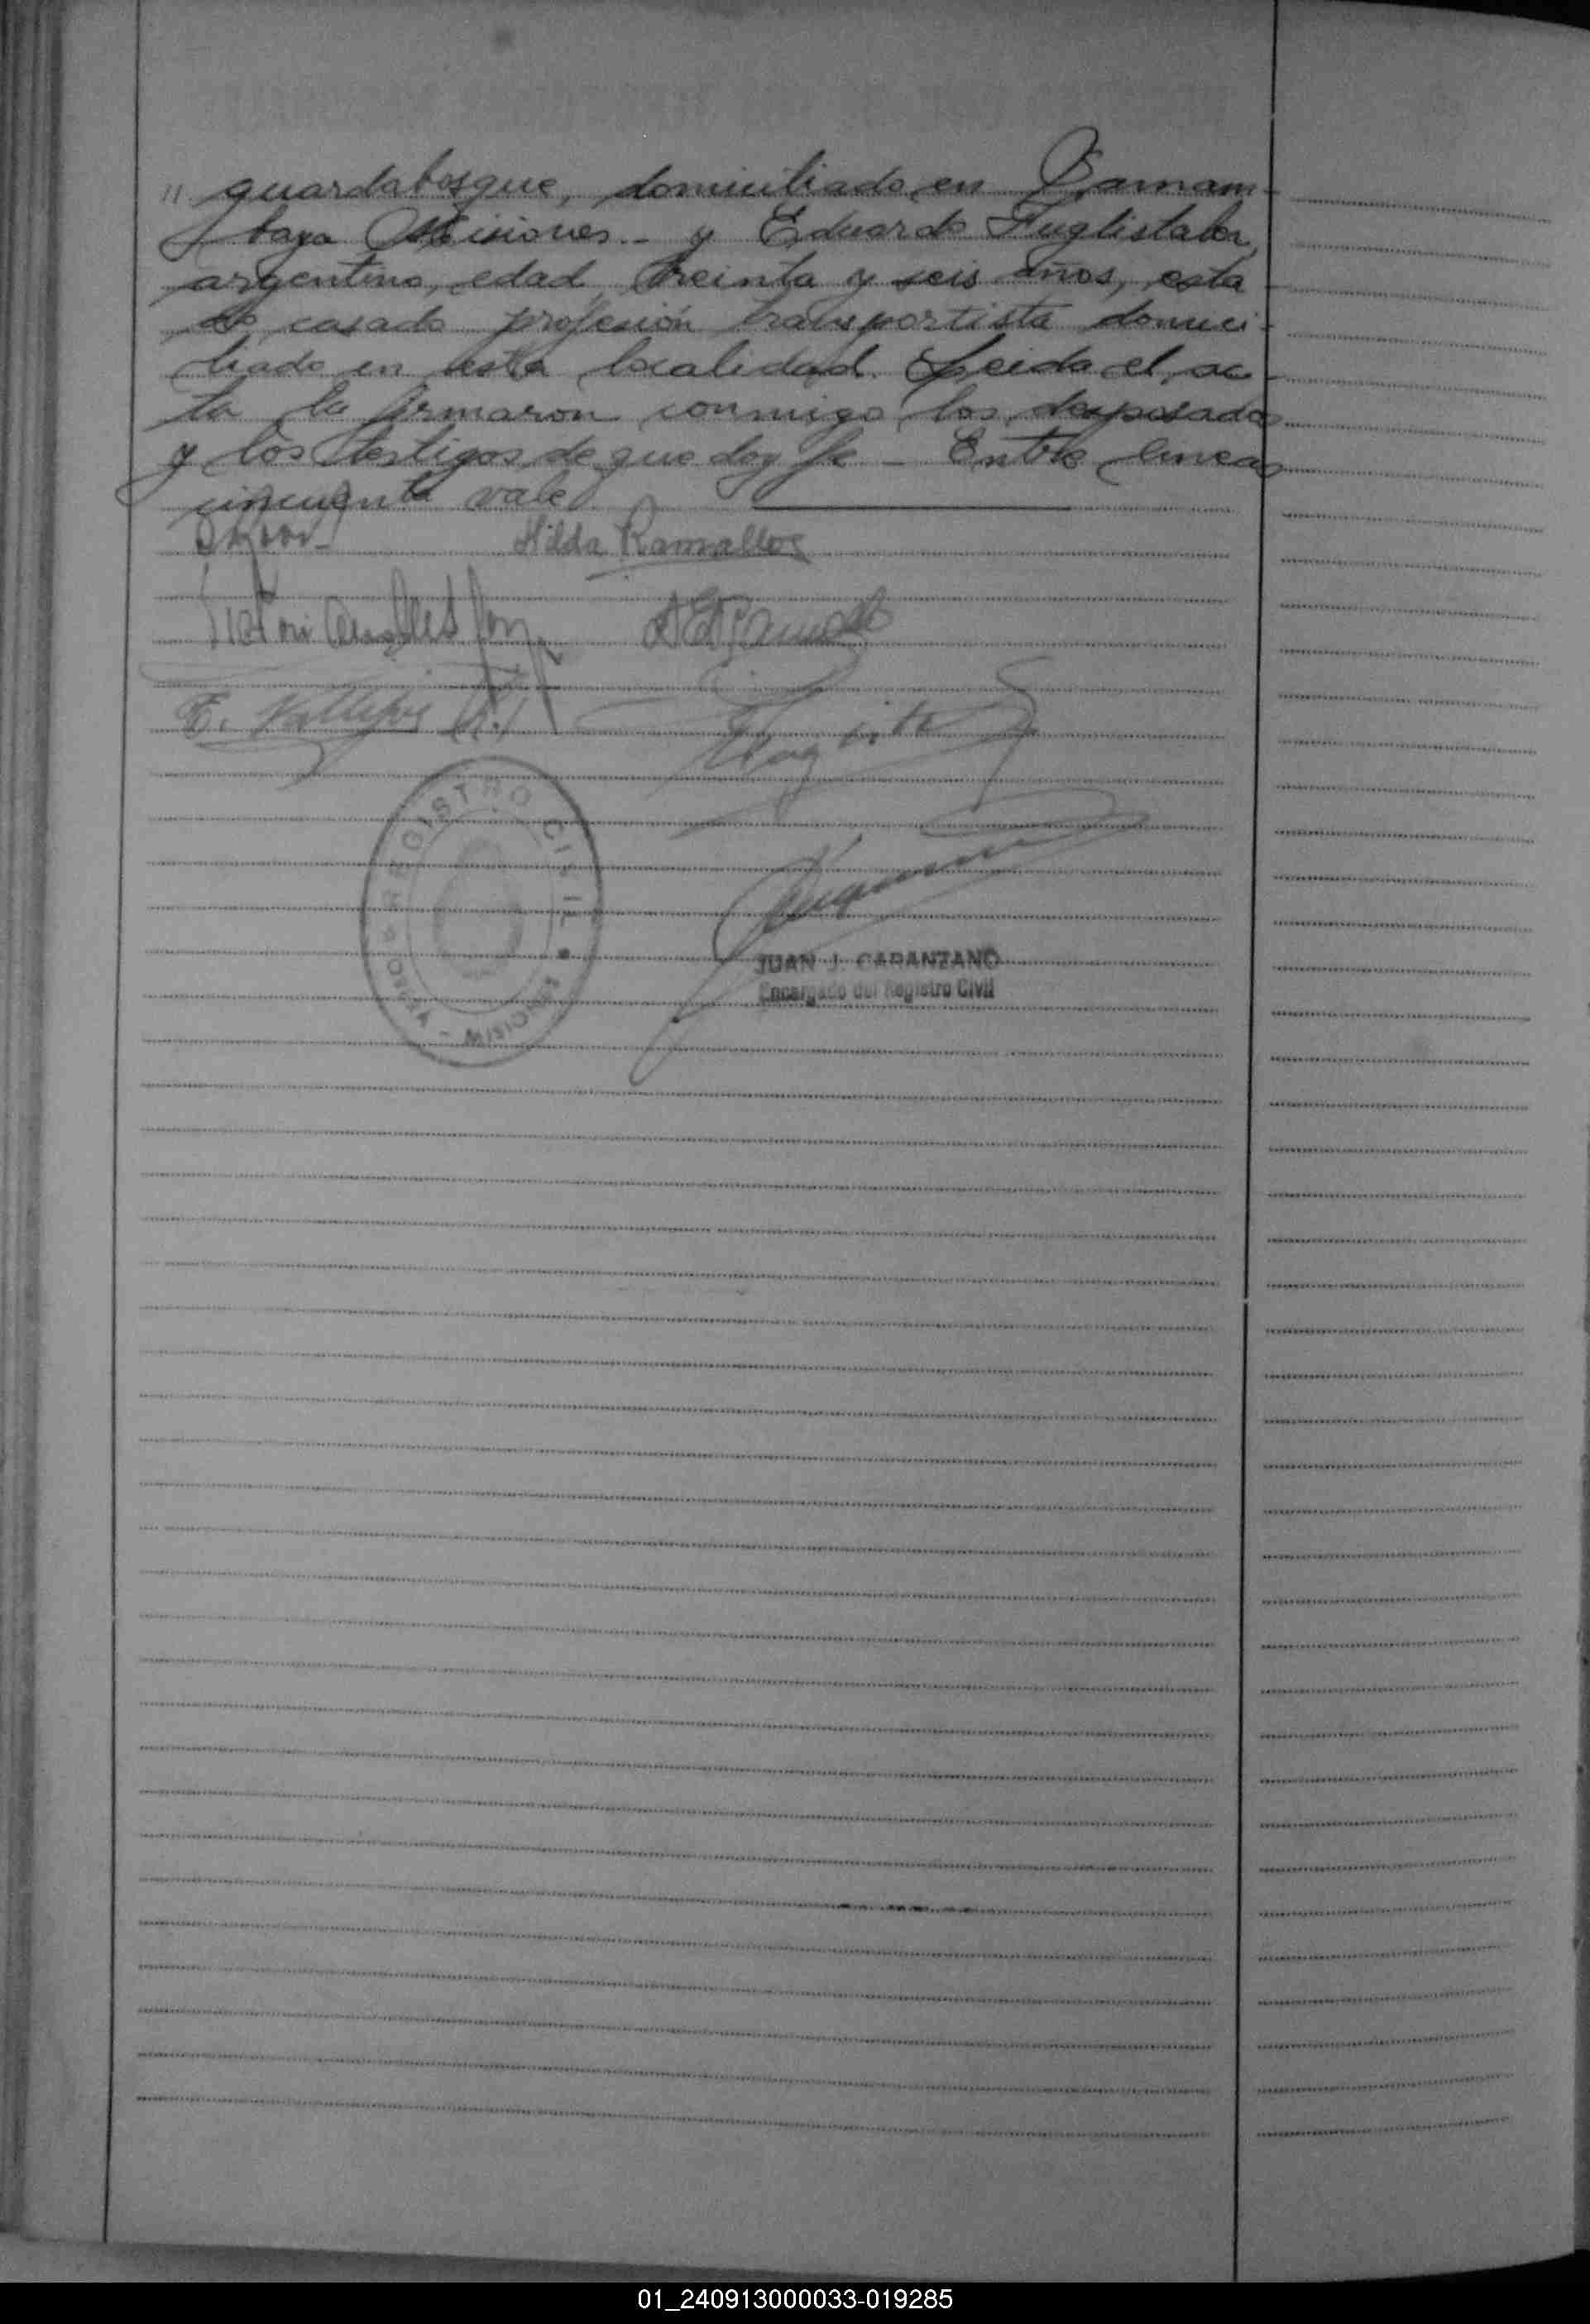 " guardabosque, domiciliado en Barnam-
baya Misiones.- y Eduardo Fuglistaler,
argentino, edad treinta y seis años, esta
do casado profesión transportista domici-
liado en esta localidad. Leida el ac-
ta la firmaron conmigo los desposados
y los testigos de que doy fe - Entre lineas
cincuenta vale
Hilda Ramallos
E. Vallejos
REGISTRO CIVIL
MISIONES
JUAN J. CARANZANO
Encargado del Registro Civil
01_240913000033-019285